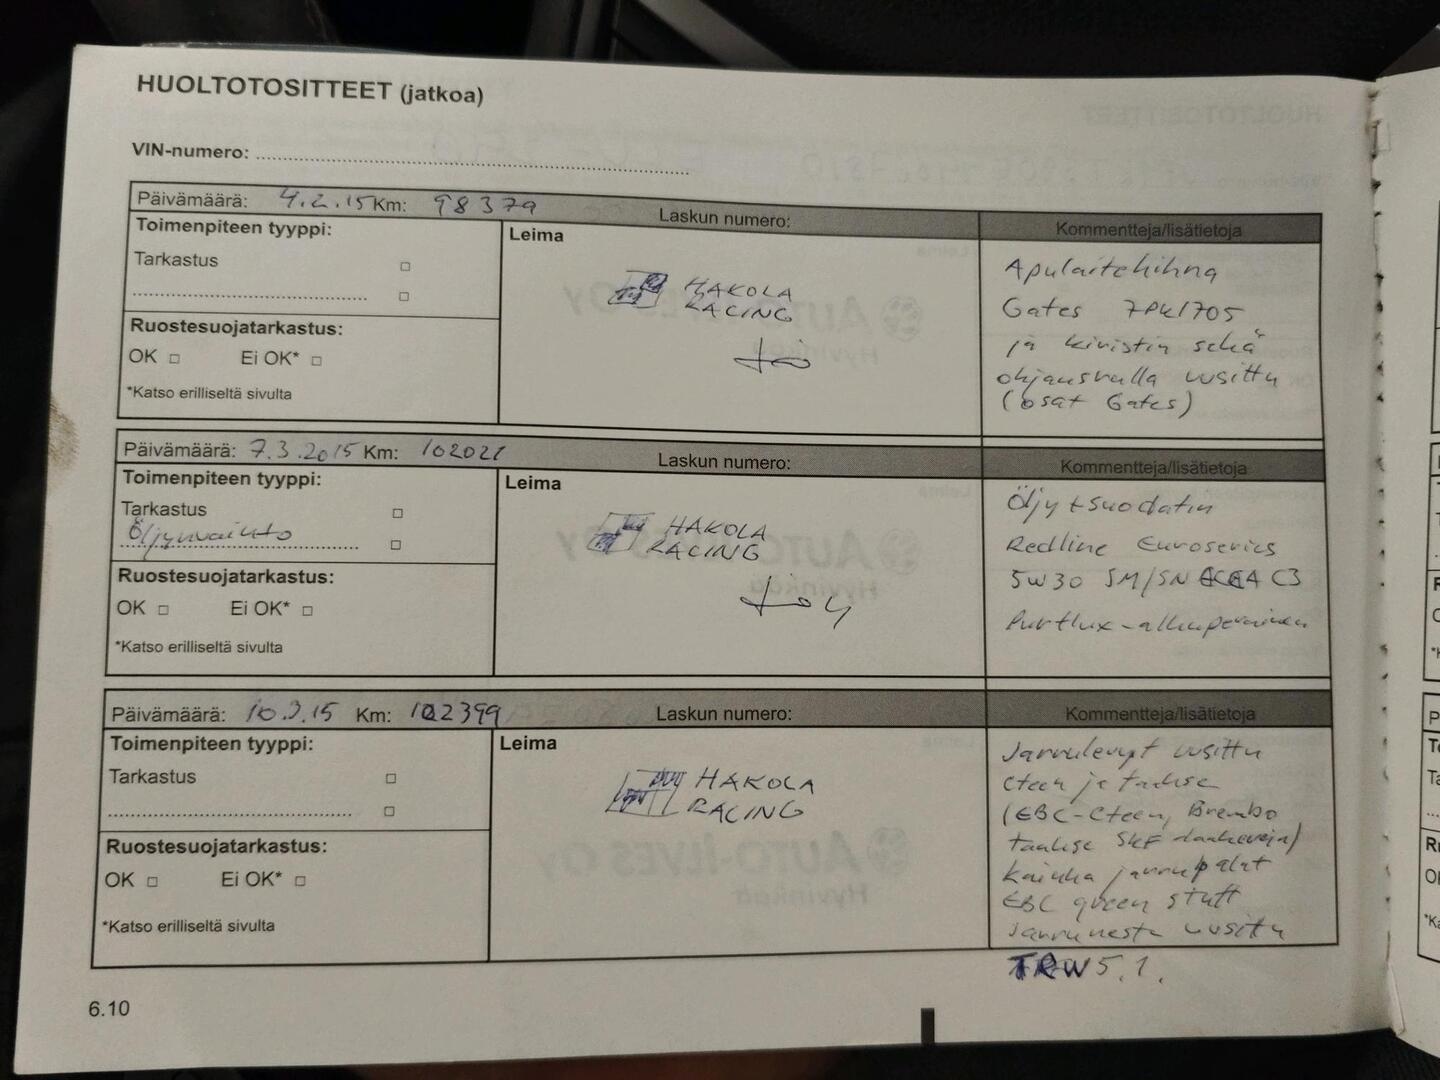 HUOLTOTOSITTEET (jatkoa)
VIN-numero:
Päivämäärä: 4.2.15 Km: 98379 Laskun numero:
Kommentteja/lisätietoja
Toimenpiteen tyyppi:
Tarkastus
Ruostesuojatarkastus:
OK Ei OK*
*Katso erilliseltä sivulta
Leima
HAKOLA
RACING
Apulaitehihna
Gates 7PK1705
ja kiristin sekä
ohjausrulla uusittu
(osat Gates)
Päivämäärä: 7.3.2015 Km: 102021 Laskun numero:
Kommentteja/lisätietoja
Toimenpiteen tyyppi:
Tarkastus
Öljynvaihto
Ruostesuojatarkastus:
OK Ei OK*
*Katso erilliseltä sivulta
Leima
HAKOLA
RACING
Öljy + suodatin
Redline Euroseries
5W30 SM/SN ACEA C3
Purflux-alkuperäinen
Päivämäärä: 10.3.15 Km: 102399 Laskun numero:
Kommentteja/lisätietoja
Toimenpiteen tyyppi:
Tarkastus
Ruostesuojatarkastus:
OK Ei OK*
*Katso erilliseltä sivulta
Leima
HAKOLA
RACING
Jarrulevyt uusittu
eteen ja taakse
(EBC-eteen, Brembo
taakse SKF laakereja)
kaikka jarrupalat
EBC green stuff
Jarruneste uusittu
TRW 5.1.
6.10